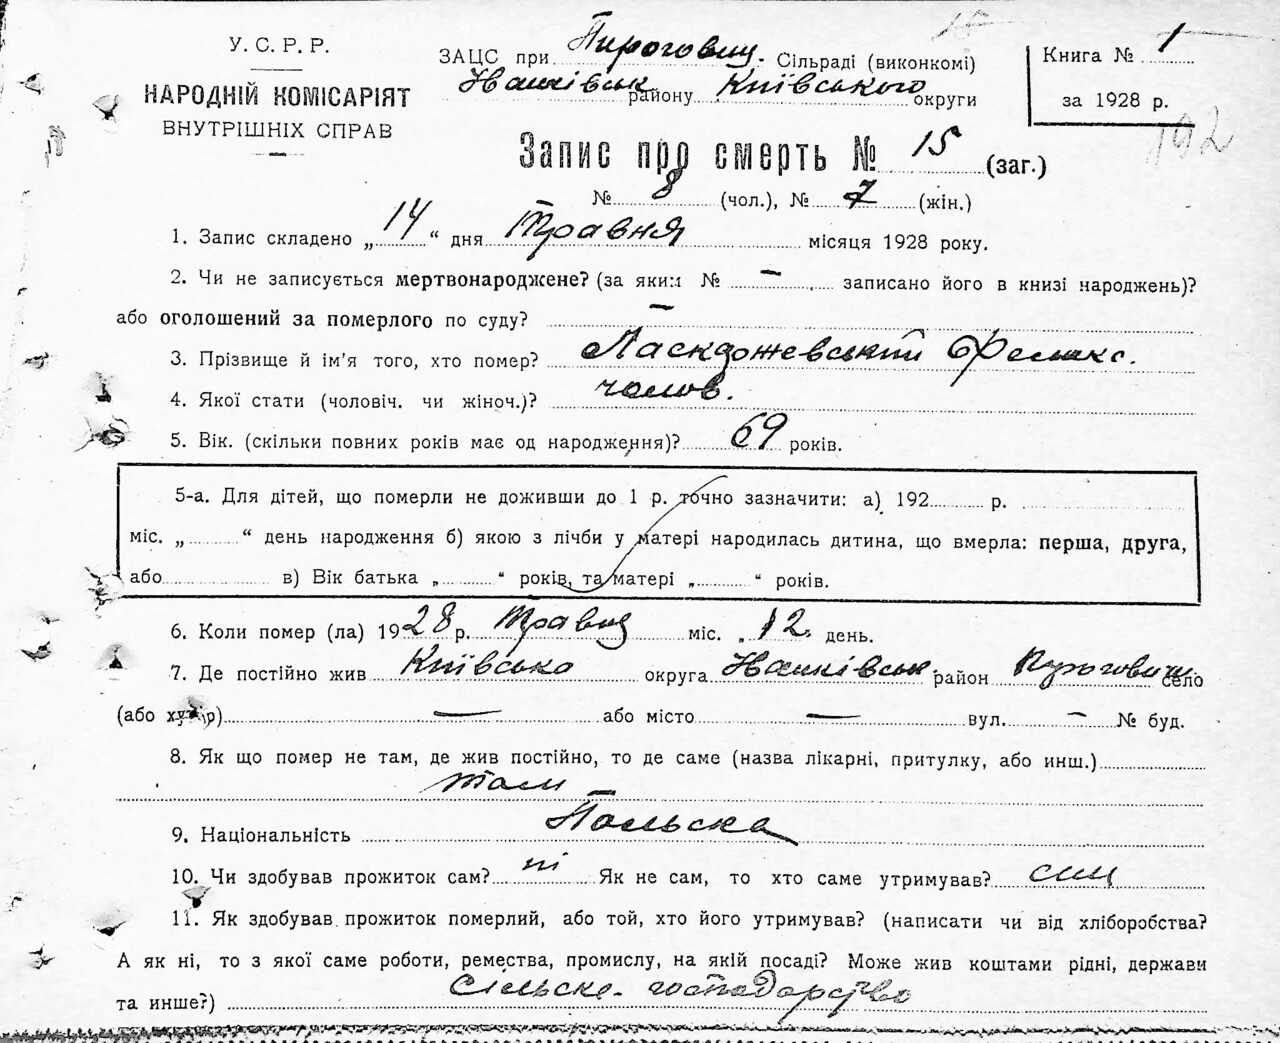 15
У. С. Р. Р.
НАРОДНІЙ КОМІСАРІЯТ
ВНУТРІШНІХ СПРАВ
ЗАЦС при Пироговиц. Сільраді (виконкомі)
району Київського округи
Книга № 1
за 1928 р.
192
Запис про смерть № 15 (заг.)
№ 8 (чол.), № 7 (жін.)
1. Запис складено „ 14 “ дня Травня місяця 1928 року.
2. Чи не записується мертвонароджене? (за яким № — записано його в книзі народжень)?
або оголошений за померлого по суду? —
3. Прізвище й ім'я того, хто помер? Ласкджевський Феликс.
4. Якої стати (чоловіч. чи жіноч.)? чолов.
5. Вік. (скільки повних років має од народження)? 69 років.
5-а. Для дітей, що померли не доживши до 1 р. точно зазначити: а) 192 р.
міс. „ “ день народження б) якою з лічби у матері народилась дитина, що вмерла: перша, друга,
або в) Вік батька „ “ років, та матері „ “ років.
6. Коли помер (ла) 1928 р. травня міс. „ 12 день.
7. Де постійно жив Київська округа район село
(або хутір) — або місто — вул. — № буд.
8. Як що помер не там, де жив постійно, то де саме (назва лікарні, притулку, або инш.)
там
9. Національність Польска
10. Чи здобував прожиток сам? ні Як не сам, то хто саме утримував? син
11. Як здобував прожиток померлий, або той, хто його утримував? (написати чи від хліборобства?
А як ні, то з якої саме роботи, ремества, промислу, на якій посаді? Може жив коштами рідні, держави
та инше?) Сільске-господарство